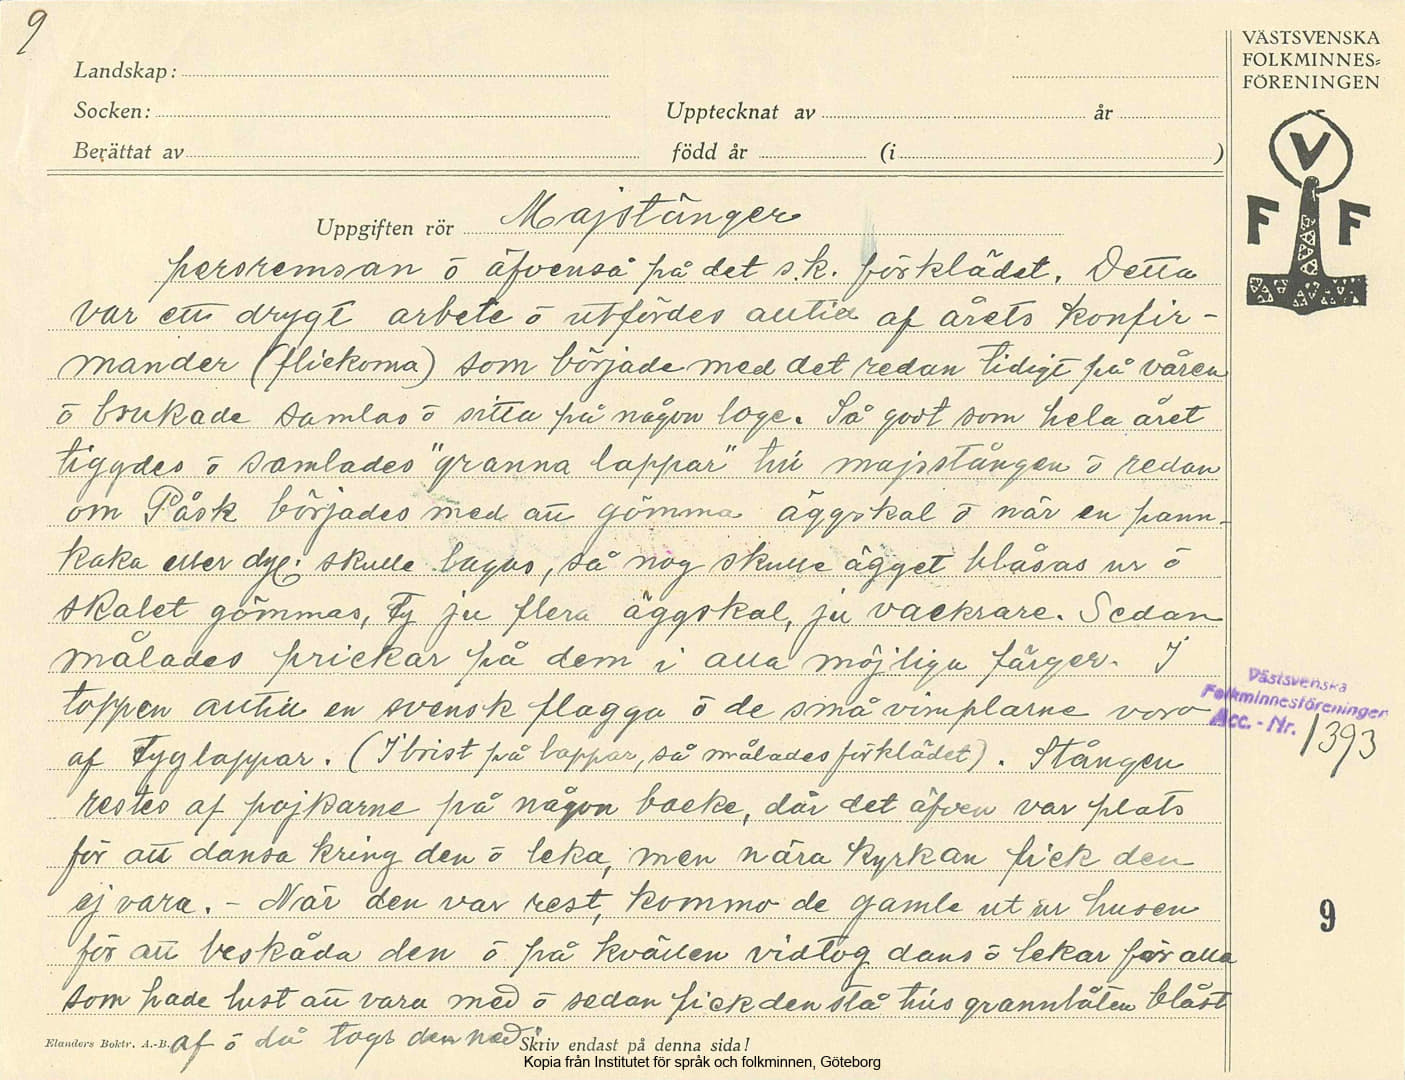 9
Landskap:
VÄSTSVENSKA
FOLKMINNES-
FÖRENINGEN
Socken: Upptecknat av år
Berättat av född år (i )
V
F F
Uppgiften rör Majstänger
persremsan ö äfvenså på det s.k. förklädet. Detta
var ett drygt arbete ö utfördes alltid af årets konfir-
mander (flickorna) som började med det redan tidigt på våren
ö brukade samlas ö sitta på någon loge. Så godt som hela året
tiggdes ö samlades "granna lappar" till majsstången ö redan
om Påsk börjades med att gömma äggskal ö när en pann-
kaka eller dyl. skulle lagas, så nog skulle ägget blåsas ur ö
skalet gömmas, Ty ju flera äggskal, ju vackrare. Sedan
målades prickar på dem i alla möjliga färger. I
toppen alltid en svensk flagga ö de små vimplarne voro
af Tyglappar. (I brist på lappar, så målades förklädet). Stången
restes af pojkarne på någon backe, där det äfven var plats
för att dansa kring den ö leka, men nära Kyrkan fick den
ej vara. - När den var rest, kommo de gamle ut ur husen
för att beskåda den ö på kvällen vidtog dans ö lekar för alla
som hade lust att vara med ö sedan fick den stå tills grannlåten blåst
af ö då togs den ned.
Västsvenska
Folkminnesföreningen
Acc. - Nr. 1393
9
Elanders Boktr. A.-B. Skriv endast på denna sida!
Kopia från Institutet för språk och folkminnen, Göteborg